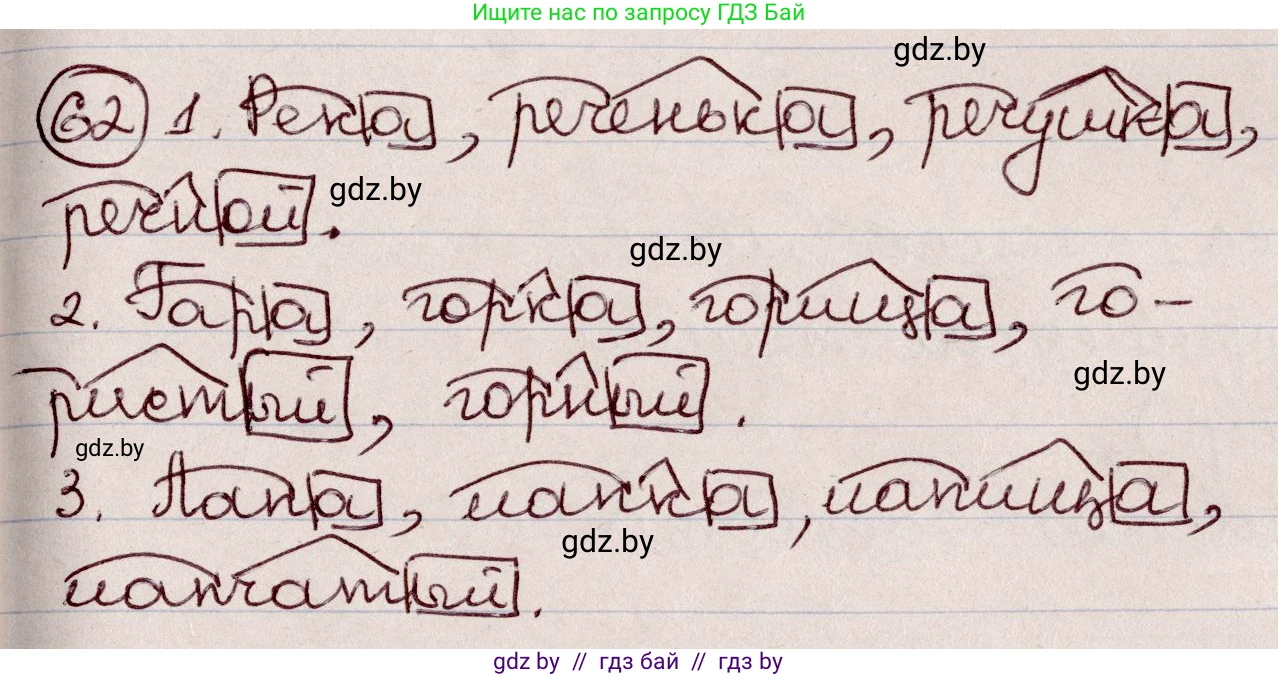 Ищите нас по запросу ГДЗ Бай
gdz.by
62 1. Река, реченька, речушка,
речной.
gdz.by
gdz.by
2. Гара, горка, горища, го-
ристый, горный.
gdz.by
gdz.by
3. Лапа, лапка, лапища,
gdz.by
лапчатый.
gdz by // гдз бай // гдз by